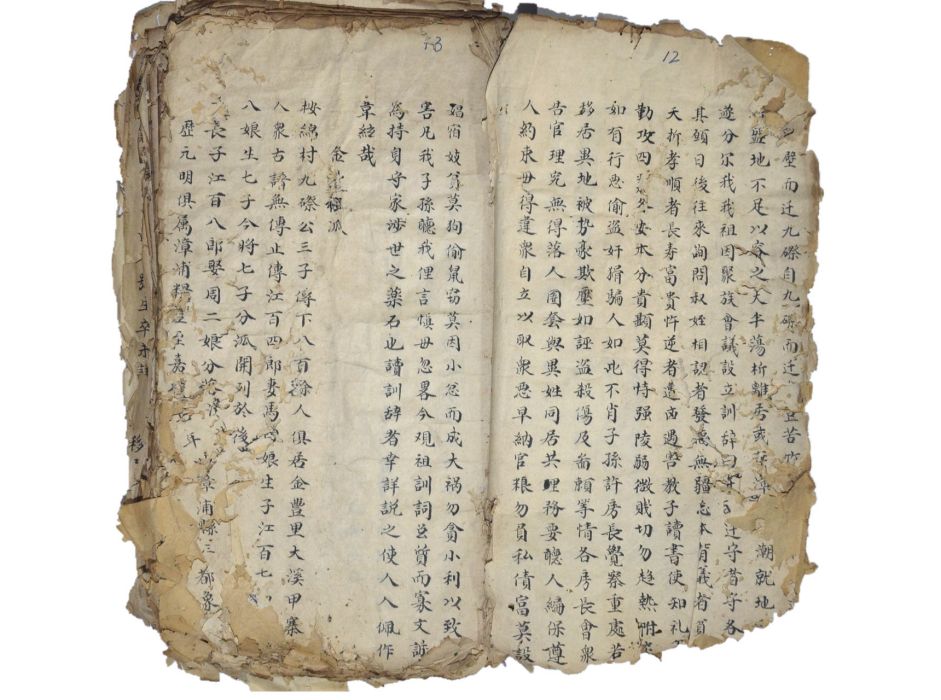 12
壁而迁九磜自九磜而迁 苦竹
盤地不足以容之大半蕩析離居或 潮就地
遂分尔我我祖因聚族會議設立訓辞曰 迁守昔守各
其頭日後往來詢問叔姪相認者發憑無疆忘本背義者貧
夭折孝順者長寿富貴忤逆者遭凶遇害教子讀書使知礼
勤攻四 安本分貴顯莫得恃强陵弱微賎切勿趍熱附
如有行悪偷盗奸猾騙人如此不肖子孫許房長覺察重處若
移居異地被势豪欺壓如誣盗殺傷及啚賴等情各房長會衆
告官理究無得落人圈套與異姓同居共里務要聽人編保遵
人約束毋得違衆自立以取衆悪早納官粮勿負私債富莫設
13
娼宿妓貧莫狗偷鼠窃莫因小忿而成大禍勿貪小利以致
害凡我子孫聽我俚言慎毋忽畧今观祖訓詞旨質而寡文訴
為持身守家涉世之薬石也讀訓辞者幸詳説之使人人佩作
韋絃哉
金豐
桉綿村九磜公三子傳下八百餘人俱居金豐里大溪甲寨
人衆古譜無傳止傳江百四郎妻馬 娘生子江百七
八娘生七子今將七子分派開列於後
長子江百八郎娶周二娘分
歷元明俱属漳浦 至嘉 年 漳浦縣三都象